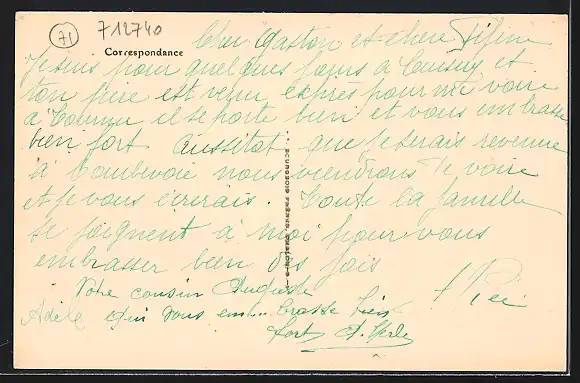 71 712740
Correspondance
Cher Gaston et chere Fifine
Je suis pour quelques jours à Cuisery et
ton père est venu expres pour me voire
a Tournu il se porte bien et vous embrasse
bien fort Aussitot que je serais revenue
à Courbevoie nous viendrons te voire
et je vous écrirais. Toute la famille
se joignent à moi pour vous
embrasser bien des fois
Votre cousin Auguste
Adèle qui vous em... brasse bien
fort
BOURGEOIS FRÈRES CHALON-S-S